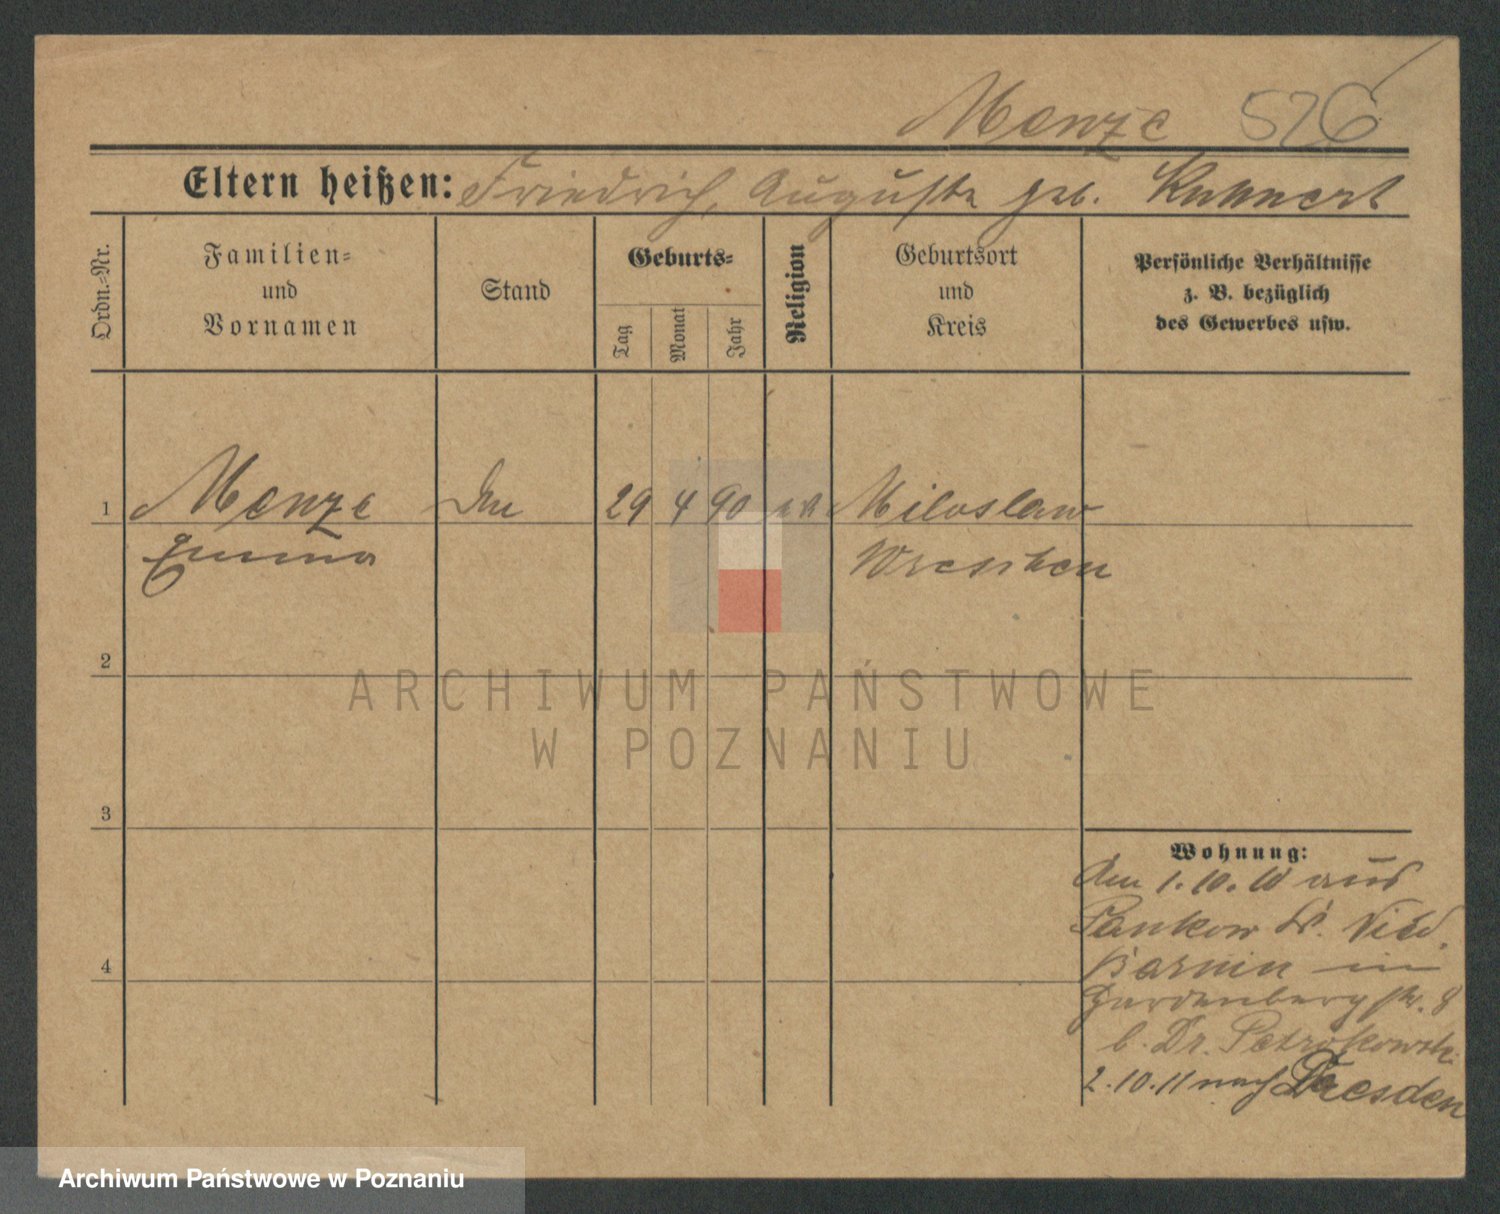 Menze 526
Eltern heißen: Friedrich, Auguste geb. Kuhnert
Ordn.-Nr.
Familien-
und
Vornamen
Stand
Geburts-
Tag
Monat
Jahr
Religion
Geburtsort
und
Kreis
Persönliche Verhältnisse
z. B. bezüglich
des Gewerbes usw.
1 Menze 29 4 90 Miloslaw
Emma Wreschen
2
3
4
Wohnung:
Am 1.10.10 aus
Pankow Kr. Nied.
Barnim in
b. Dr. Petrokowski
2.10.11 nach Dresden
ARCHIWUM PAŃSTWOWE
W POZNANIU
Archiwum Państwowe w Poznaniu